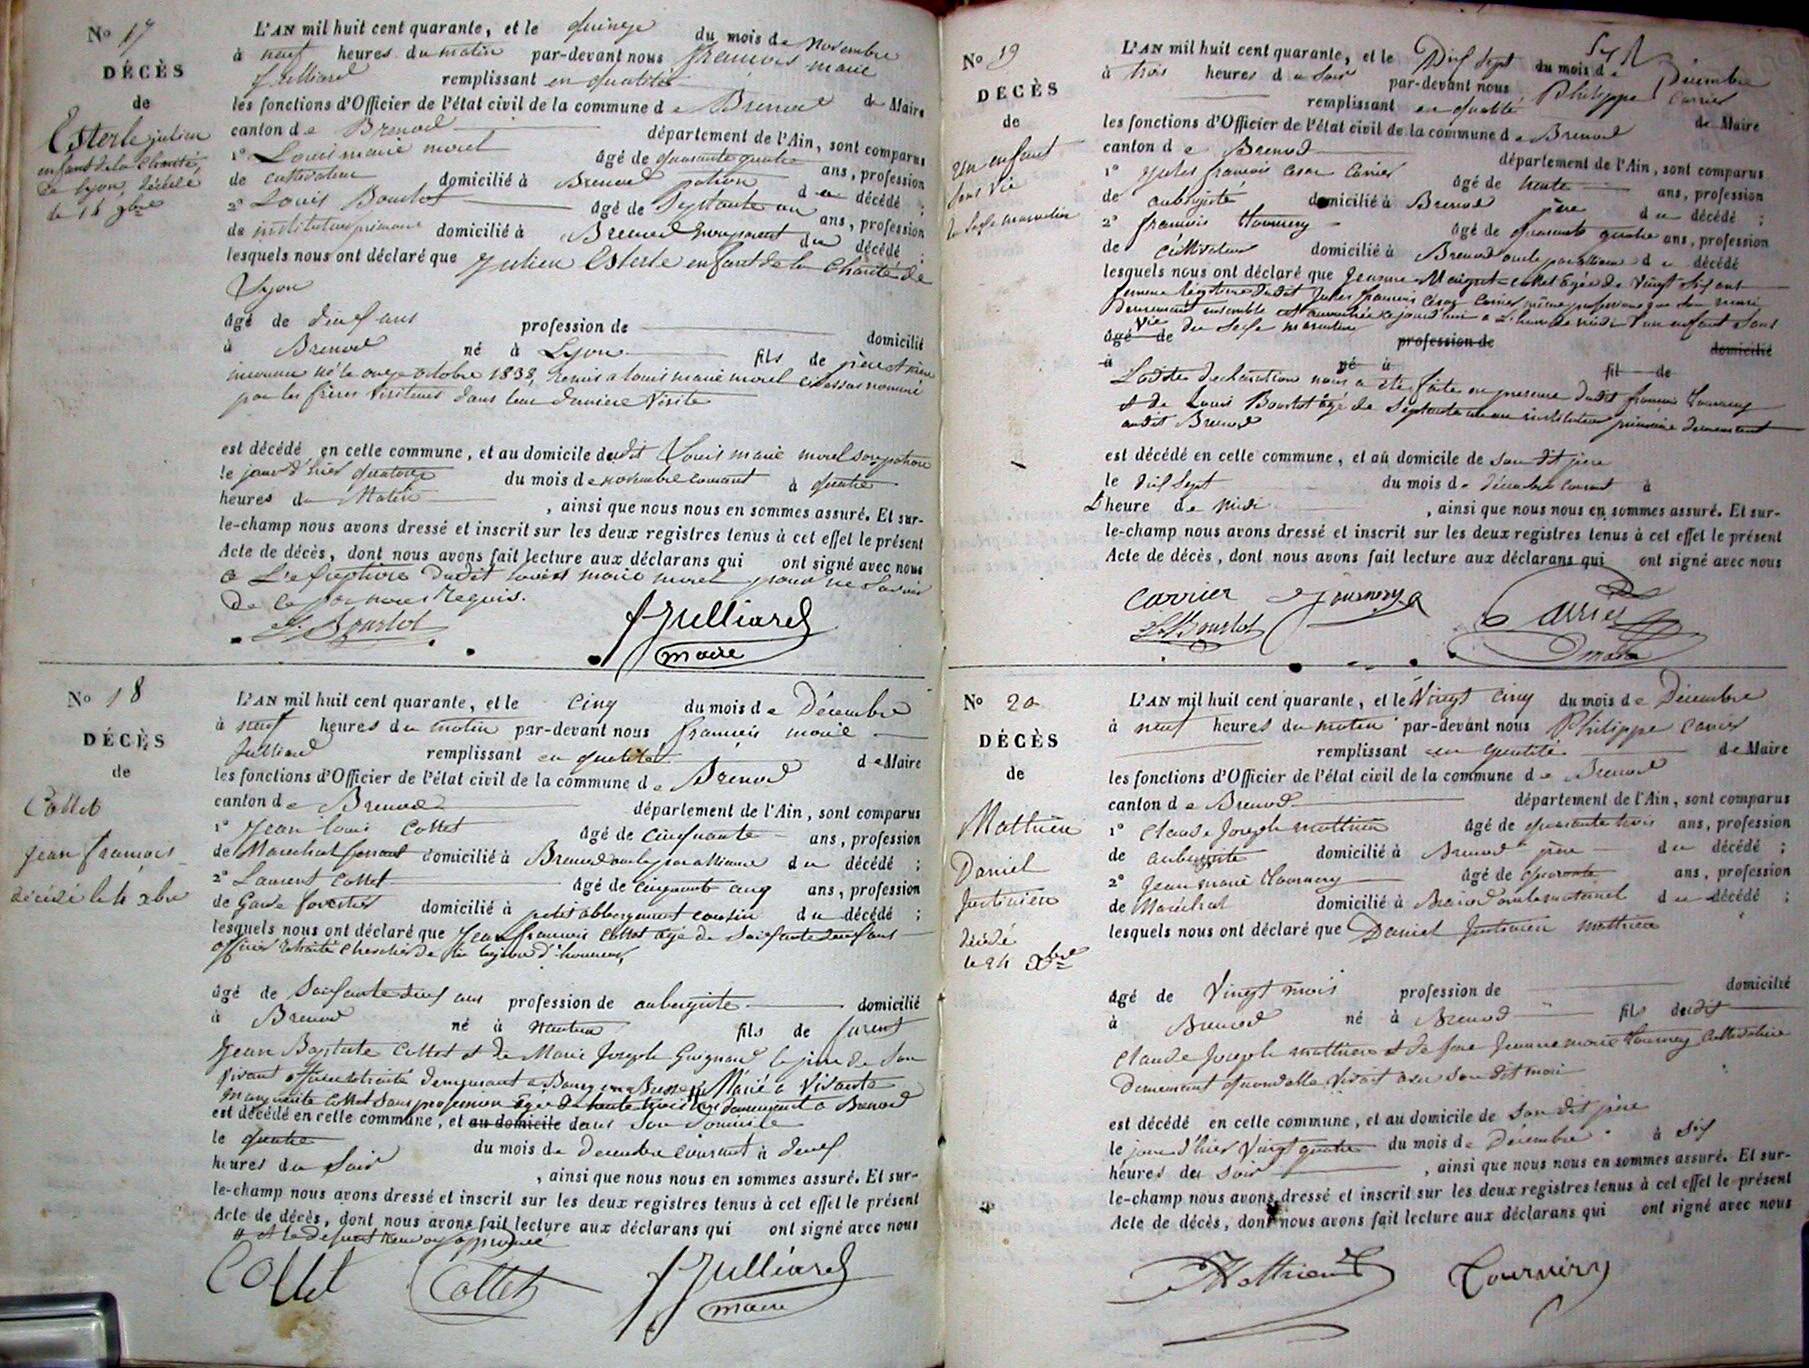 No 17
DÉCÈS
de
Esterle julien
enfant de la Charité
de Lyon, décédé
le 14 9bre
L'AN mil huit cent quarante, et le quinze du mois de Novembre
à neuf heures du matin par-devant nous françois marie
Julliard remplissant en qualité de Maire
les fonctions d'Officier de l'état civil de la commune de Brenod
canton de Brenod département de l'Ain, sont comparus
1° Louis marie morel âgé de quarante quatre ans, profession
de cultivateur domicilié à Brenod patron du décédé ;
2° Louis Bourlot âgé de Septante un ans, profession
de instituteur primaire domicilié à Brenod du décédé ;
lesquels nous ont déclaré que Julien Esterle enfant de la Charité de
Lyon
âgé de deux ans profession de domicilié
à Brenod né à Lyon fils de père et mère
inconnu né le onze octobre 1838, remis a louis marie morel ci dessus nommé
par les frères visiteurs dans leur dernière Visite
est décédé en cette commune, et au domicile dudit Louis marie morel son patron
le jour d'hier quatorze du mois de novembre courant à quatre
heures du Matin , ainsi que nous nous en sommes assuré. Et sur-
le-champ nous avons dressé et inscrit sur les deux registres tenus à cet effet le présent
Acte de décès, dont nous avons fait lecture aux déclarans qui ont signé avec nous
a L'exception dudit Louis marie morel pour ne Savoir
de ce par nous Requis.
L. Bourlot Julliard
maire
No 18
DÉCÈS
de
Collet
jean françois
décédé le 4 xbre
L'AN mil huit cent quarante, et le cinq du mois de Décembre
à neuf heures du matin par-devant nous françois marie
Julliard remplissant en qualité de Maire
les fonctions d'Officier de l'état civil de la commune de Brenod
canton de Brenod département de l'Ain, sont comparus
1° Jean Louis Collet âgé de cinquante ans, profession
de Marechal ferrant domicilié à Brenod oncle par alliance du décédé ;
2° Laurent Collet âgé de cinquante cinq ans, profession
de Garde forestier domicilié à petit abbergement cousin du décédé ;
lesquels nous ont déclaré que Jean françois Collet agé de Soixante deux ans
officier retraité chevalier de la légion d'honneur,
âgé de Soixante deux ans profession de aubergiste domicilié
à Brenod né à Nantua fils de furent
Jean Baptiste Collet et de Marie Joseph Guignard le père de Son
vivant officier retraité demeurant a Bourg en Bresse # Marié a Vivante
Marguerite Collet Sans profession Agée de trente trois ans demeurant a Brenod
est décédé en cette commune, et au domicile dans Son Domicile
le quatre du mois de Decembre courant à deux
heures du Soir , ainsi que nous nous en sommes assuré. Et sur-
le-champ nous avons dressé et inscrit sur les deux registres tenus à cet effet le présent
Acte de décès, dont nous avons fait lecture aux déclarans qui ont signé avec nous
Collet Collet Julliard
maire
No 19
DÉCÈS
de
un enfant
sans vie
du Sexe masculin
L'AN mil huit cent quarante, et le Dix Sept du mois de Décembre
à trois heures du Soir par-devant nous Philippe Carrier
remplissant en qualité de Maire
les fonctions d'Officier de l'état civil de la commune de Brenod
canton de Brenod département de l'Ain, sont comparus
1° Jules françois Cesar Carrier âgé de trente ans, profession
de aubergiste domicilié à Brenod père du décédé ;
2° françois Tournery âgé de quarante quatre ans, profession
de cultivateur domicilié à Brenod oncle par alliance du décédé
lesquels nous ont déclaré que Jeanne Collet agée de Vingt six ans
femme légitime dudit Jules françois César Carrier même profession que Son mari
Demeurant ensemble est accouchée cejourd'hui a L'heure de midi d'un enfant Sans
Vie du Sexe masculin
âgé de profession de domicilié
à né à fil de
Laditte declaration nous a été faite en presence dudit françois Tournery
et de Louis Bourlot agé de Septante un an instituteur primaire demeurant
audit Brenod
est décédé en cette commune, et au domicile de son dit père
le dix Sept du mois de décembre courant à
L'heure de midi , ainsi que nous nous en sommes assuré. Et sur-
le-champ nous avons dressé et inscrit sur les deux registres tenus à cet effet le présent
Acte de décès, dont nous avons fait lecture aux déclarans qui ont signé avec nous
Carrier Tournery Carrier
L. Bourlot maire
No 20
DÉCÈS
de
Mathieu
Daniel
Justinien
décédé
le 24 Xbre
L'AN mil huit cent quarante, et le Vingt cinq du mois de Décembre
à neuf heures du matin par-devant nous Philippe Carrier
remplissant en qualité de Maire
les fonctions d'Officier de l'état civil de la commune de Brenod
canton de Brenod département de l'Ain, sont comparus
1° Claude Joseph Matthieu âgé de quarante trois ans, profession
de aubergiste domicilié à Brenod père du décédé ;
2° Jean marie Tournery âgé de quarante ans, profession
de Maréchal domicilié à Brenod oncle maternel du décédé ;
lesquels nous ont déclaré que Daniel Justinien Matthieu
âgé de Vingt mois profession de domicilié
à Brenod né à Brenod fils dudit
Claude Joseph Matthieu et de feue Jeanne marie Tournery Cultivatrice
Demeurant quand elle Vivait avec Son dit mari
est décédé en cette commune, et au domicile de Son dit père
le jour d'hier Vingt quatre du mois de Décembre à six
heures du soir , ainsi que nous nous en sommes assuré. Et sur-
le-champ nous avons dressé et inscrit sur les deux registres tenus à cet effet le présent
Acte de décès, dont nous avons fait lecture aux déclarans qui ont signé avec nous
Matthieu Tournery